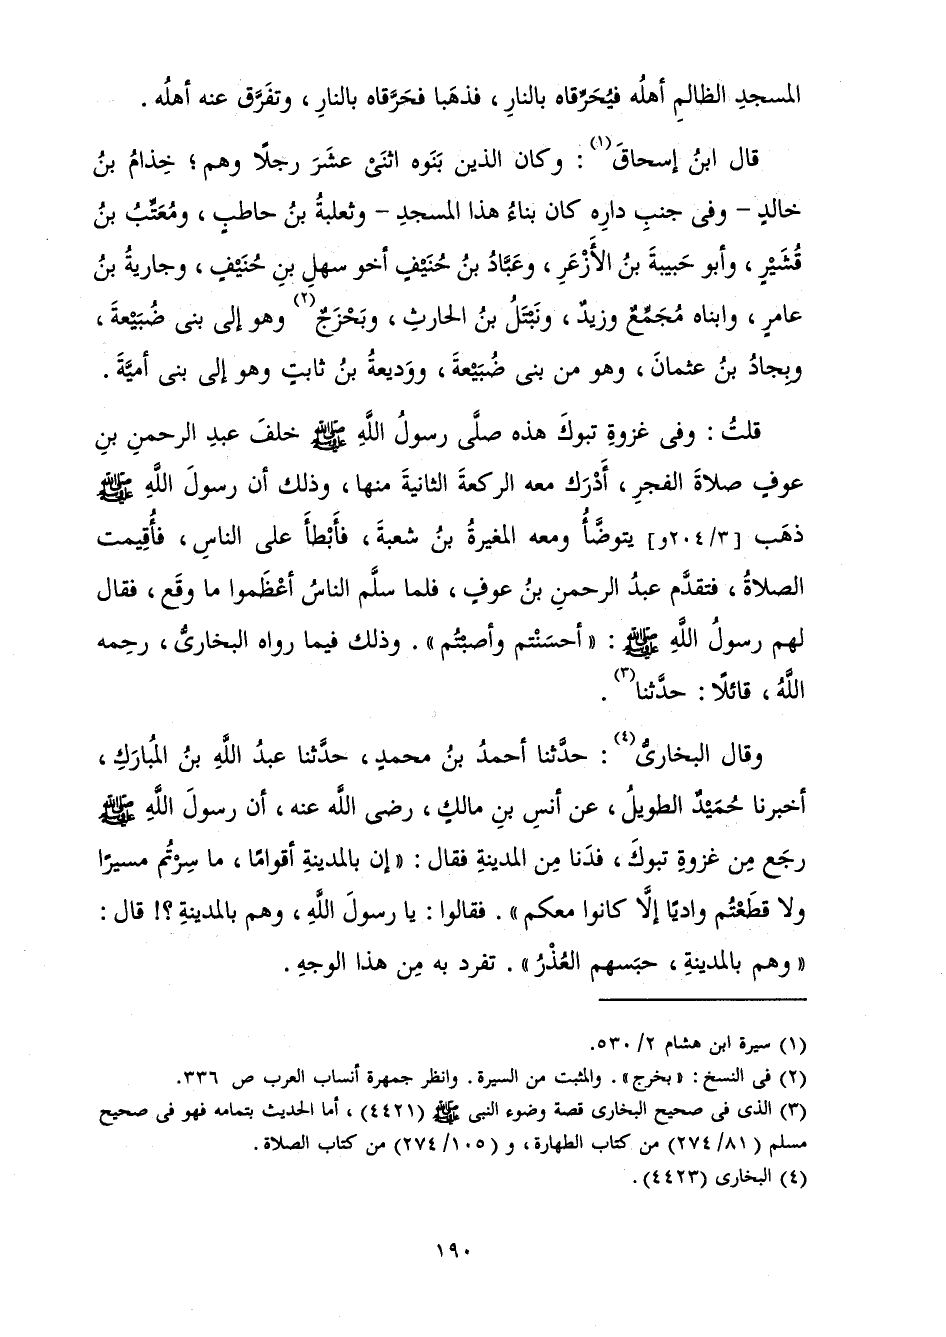 المسجدِ الظالمِ أهلُه فيُحَرِّقاه بالنارِ ، فذهَبا فحَرَّقاه بالنارِ ، وتفَرَّق عنه أهلُه .
قال ابنُ إسحاقَ(١) : وكان الذين بَنَوه اثنَىْ عشَرَ رجلًا وهم ؛ خِذامُ بنُ
خالدٍ – وفى جنبِ دارِه كان بناءُ هذا المسجدِ – وثعلبةُ بنُ حاطبٍ ، ومُعَتِّبُ بنُ
قُشَيْرٍ ، وأبو حَبيبةَ بنُ الأَزْعَرِ ، وعَبَّادُ بنُ حُنَيْفٍ أخو سهلِ بنِ حُنَيْفٍ ، وجاريةُ بنُ
عامرٍ ، وابناه مُجَمِّعٌ وزيدٌ ، ونَبْتَلُ بنُ الحارثِ ، وبَحْزَجٌ(٢) وهو إلى بنى ضُبَيْعةَ ،
وبِجادُ بنُ عثمانَ ، وهو من بنى ضُبَيْعةَ ، ووَديعةُ بنُ ثابتٍ وهو إلى بنى أميَّةَ .
قلتُ : وفى غزوةِ تبوكَ هذه صلَّى رسولُ اللَّهِ ﷺ خلفَ عبدِ الرحمنِ بنِ
عوفٍ صلاةَ الفجرِ ، أَدْرَك معه الركعةَ الثانيةَ منها ، وذلك أن رسولَ اللَّهِ ﷺ
ذهَب [٢٠٤/٣و] يتوضَّأُ ومعه المغيرةُ بنُ شعبةَ ، فأَبْطأَ على الناسِ ، فأُقِيمت
الصلاةُ ، فتقدَّم عبدُ الرحمنِ بنُ عوفٍ ، فلما سلَّم الناسُ أعْظَموا ما وقَع ، فقال
لهم رسولُ اللَّهِ ﷺ : « أحسَنْتم وأصبْتُم » . وذلك فيما رواه البخارىُّ ، رحِمه
اللَّهُ ، قائلًا : حدَّثنا(٣) .
وقال البخارىُّ(٤) : حدَّثنا أحمدُ بنُ محمدٍ ، حدَّثنا عبدُ اللَّهِ بنُ المُبارَكِ ،
أخبرنا حُمَيْدٌ الطويلُ ، عن أنسِ بنِ مالكٍ ، رضى اللَّه عنه ، أن رسولَ اللَّهِ ﷺ
رجَع مِن غزوةِ تبوكَ ، فدَنا مِن المدينةِ فقال : « إن بالمدينةِ أقوامًا ، ما سِرْتُم مسيرًا
ولا قطَعْتُم واديًا إلَّا كانوا معكم » . فقالوا : يا رسولَ اللَّهِ ، وهم بالمدينةِ ؟! قال :
« وهم بالمدينةِ ، حبَسهم العُذْرُ » . تفرد به مِن هذا الوجهِ .
(١) سيرة ابن هشام ٢/ ٥٣٠.
(٢) فى النسخ : « بخرج » . والمثبت من السيرة . وانظر جمهرة أنساب العرب ص ٣٣٦.
(٣) الذى فى صحيح البخارى قصة وضوء النبى ﷺ (٤٤٢١) ، أما الحديث بتمامه فهو فى صحيح
مسلم (٢٧٤/٨١) من كتاب الطهارة ، و (٢٧٤/١٠٥) من كتاب الصلاة .
(٤) البخارى (٤٤٢٣) .
١٩٠